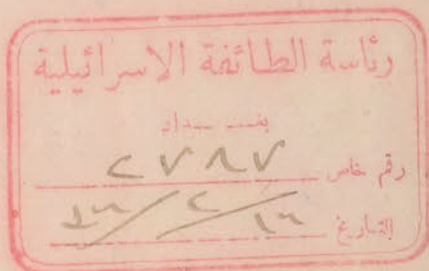 رئاسة الطائفة الاسرائيلية
بغــداد
رقم خاص ٢٧٨٧
التاريخ ١٦/٢/